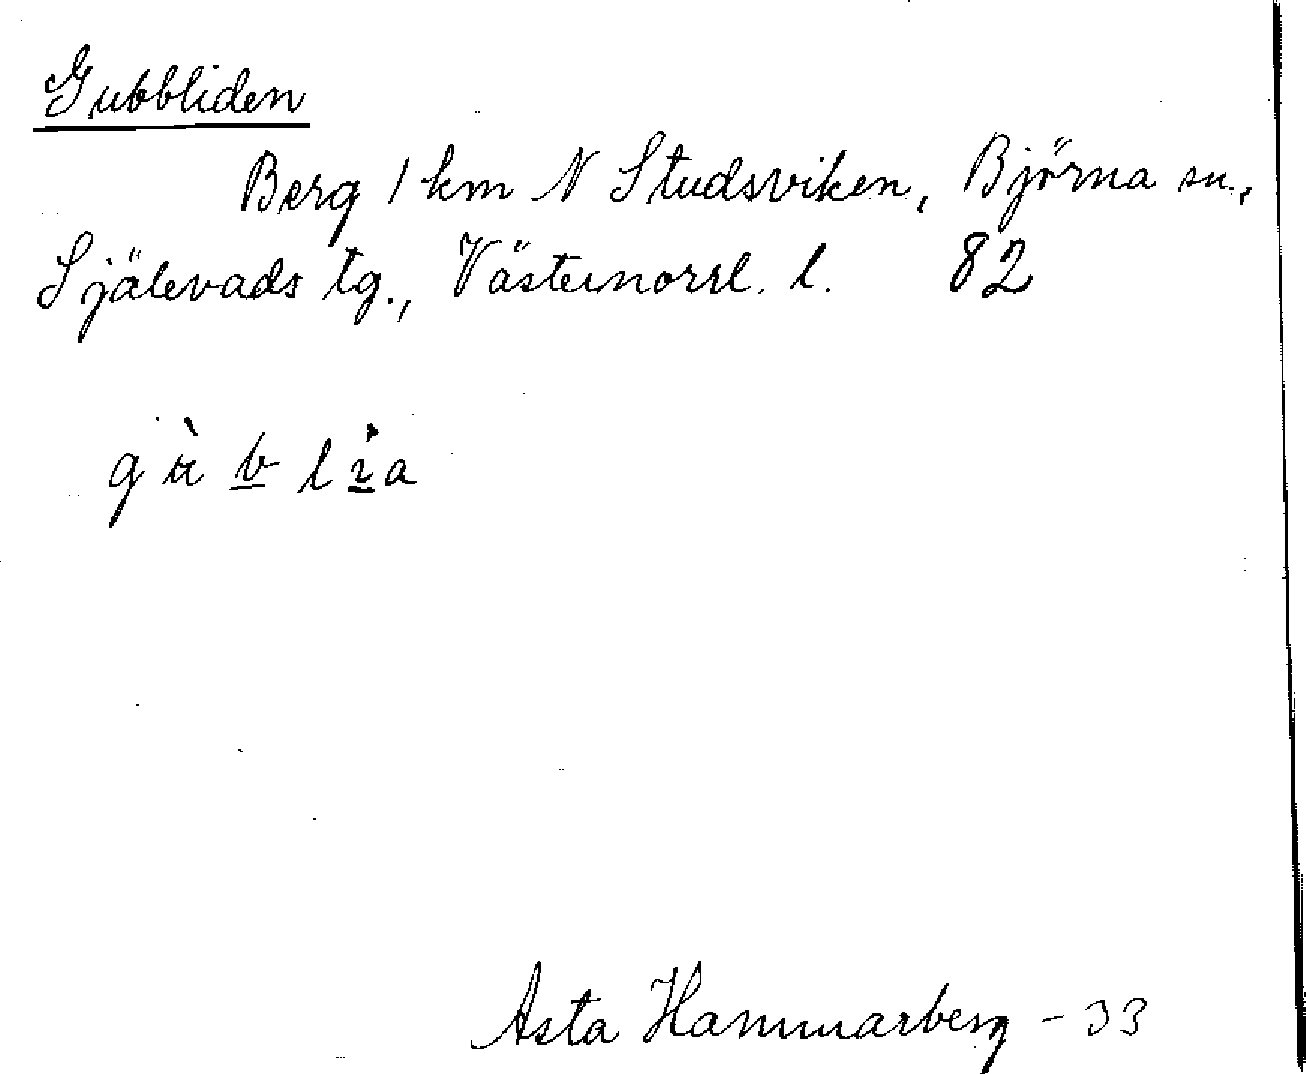 Gubbliden
Berg 1 km N Studsviken, Björna sn.,
Själevads tg., Västernorrl. l. 82
gù b̲ l i̲̇a
Asta Hammarberg - 33